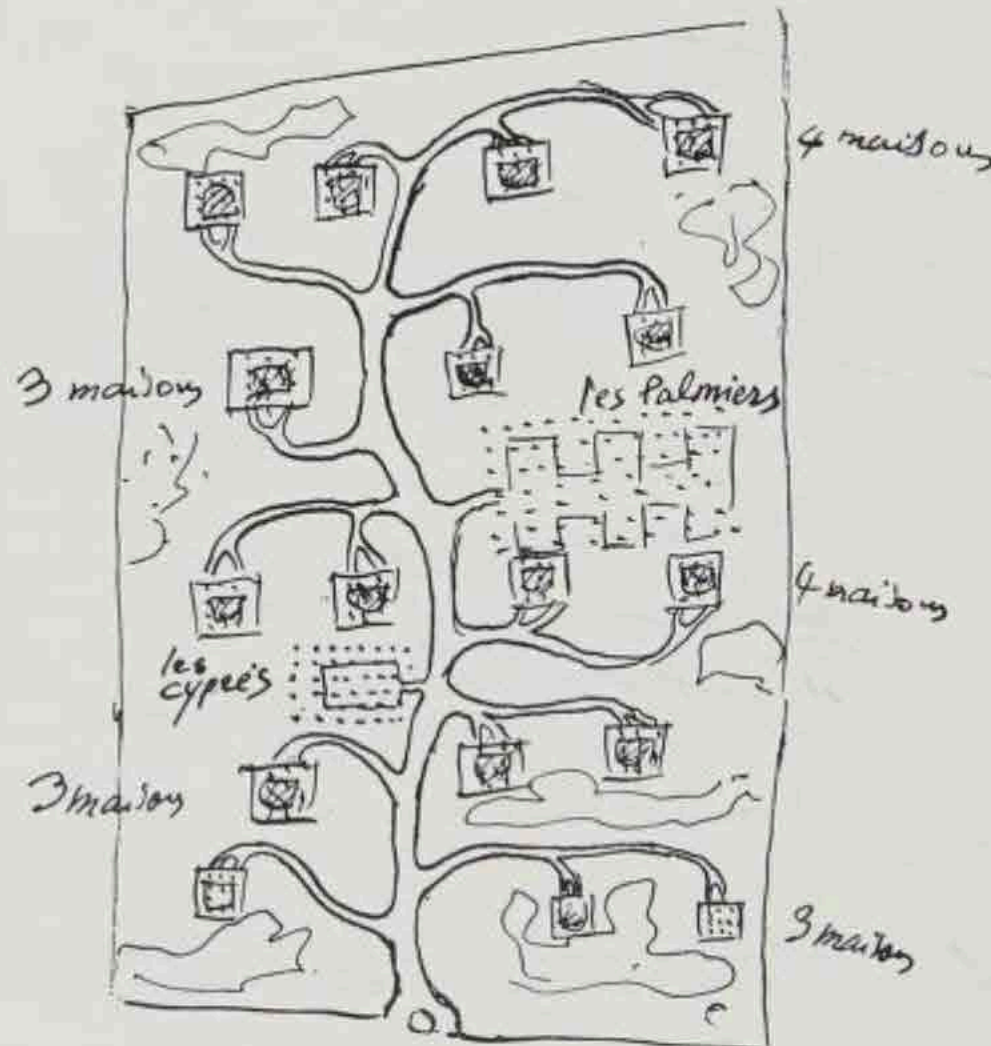 4 maisons
3 maisons
les Palmiers
4 maisons
les
cyprés
3 maisons
3 maisons